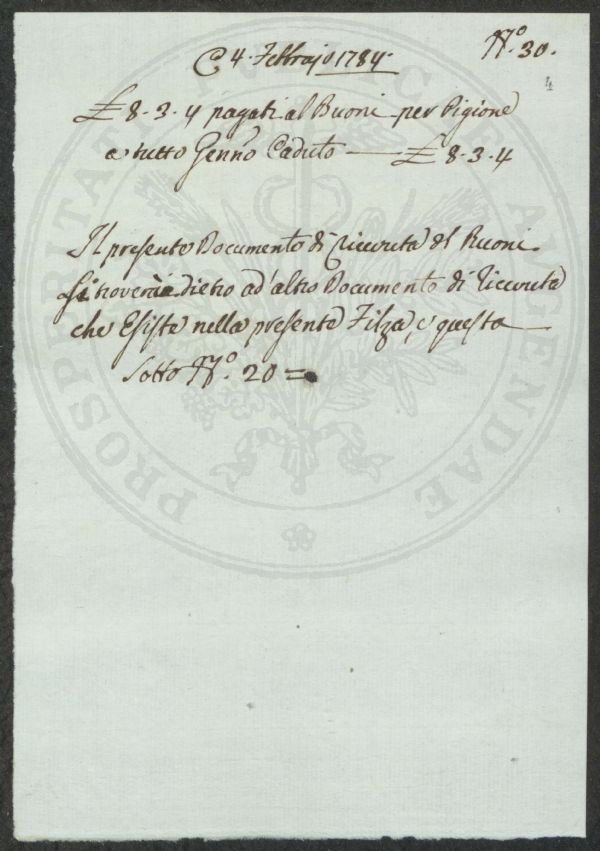 N.º 30.
4
C 4 Febbrajo 1784.
£ 8-3-4 pagati al Buoni per Pigione
a tutto Genn.º Caduto — £ 8-3-4
Il presente Documento di Ricevuta del Buoni
Si troverà dietro ad' altro Documento di ricevuta
che Esiste nella presente Filza, e questa
Sotto N.º 20 =
PROSPERITATI PUBLICAE AUGENDAE